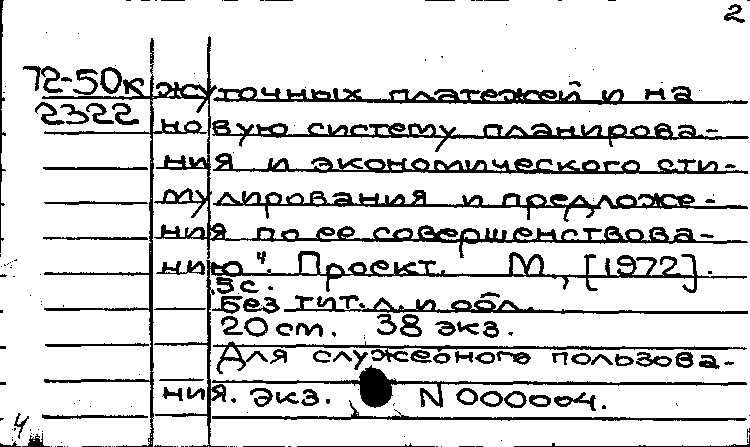 2
72-50к жуточных платежей и на
2322
новую систему планирова-
ния и экономического сти-
мулирования и предложе-
ния по ее совершенствова-
нию". Проект. М., [1972].
5 с.
Без тит. л. и обл.
20 см. 38 экз.
Для служебного пользова-
ния. экз. N 000004.
4